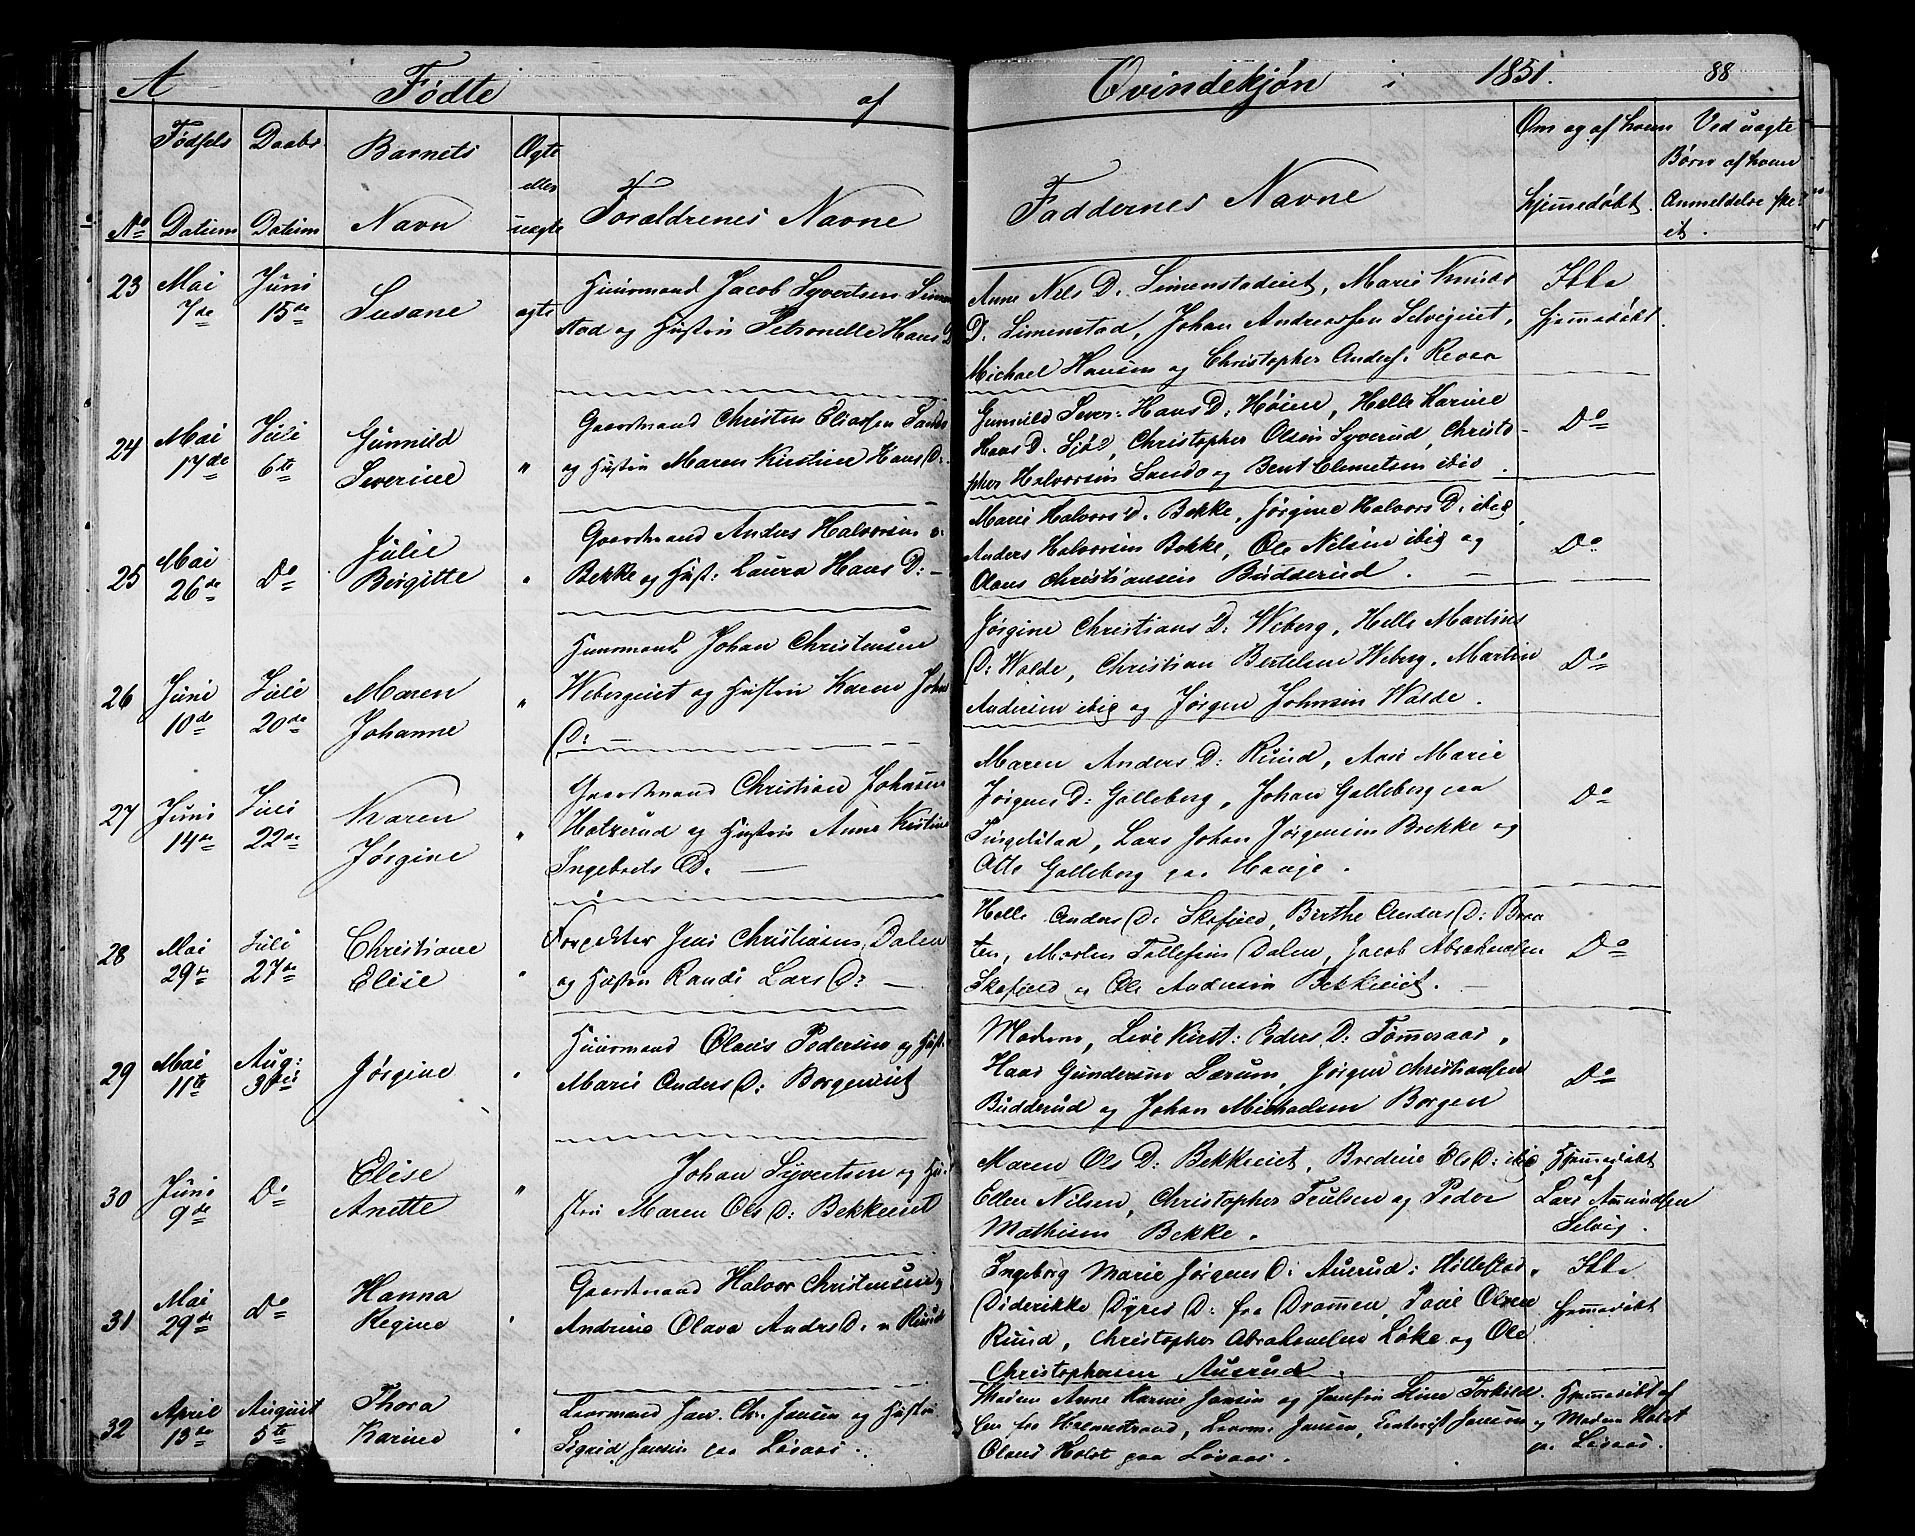 A Fødte af Qvindekjøn i 1851. 88
No
Fødsels Datum
Daabs Datum
Barnets Navn
Ægte eller uægte
Forældrenes Navne
Faddernes Navne
Om og af hvem hjemmedøbt.
Ved uægte Børn af hvem Anmeldelse skeet.
23 Mai 7de Juni 15de Susane ægte
Huusmand Jacob Syvertsen Simen
stad og Hustru Petronelle Hans D
Anne Nils D. Simenstadeiet, Marie Knuds
D. Simenstad, Johan Andreassen Selvigeiet,
Michael Hansen og Christopher Anders. Revaa
Ikke
hjemmedøbt.
24 Mai 17de Juli 6te Gunnild Severine "
Gaardmand Christen Eliassen Sando
og Hustru Maren Kirstine Hans D:
Gunnild Sever: Hans D. Høien, Helle Karine
Hans D. Sjøl, Christopher Olsen Syverud, Christo-
pher Halvorsen Sando og Bent Clemetsen ibid.
Do
25 Mai 26de Do Julie Birgitte "
Gaardmand Anders Halvorsen
Bekke og Hust: Laura Hans D: —
Marie Halvors D. Bekke, Jørgine Halvors D. ibig
Anders Halvorsen Bekke, Ole Nilsen ibig og
Olaus Christiansen Budderud. —
Do
26 Juni 10de Juli 20de Maren Johanne "
Huusmand Johan Christensen
Webergeiet og Hustru Karen Johns
D: —
Jørgine Christians D: Weberg, Helle Martins
D: Wolde, Christian Bertelsen Weberg, Martin
Andersen ibig og Jørgen Johnsen Wolde.
Do
27 Juni 14de Juli 22de Karen Jørgine "
Gaardmand Christian Johnsen
Holtzrud og Hustru Anne Kirstine
Ingebrets D. —
Maren Anders D: Ruud, Anne Marie
Jørgens D: Galleberg, Johan Galleberg paa
Tingelstad, Lars Johan Jørgensen Brekke og
Otto Galleberg paa Hauge.
Do
28 Mai 29de Juli 27de Christiane Elise "
Forpagter Jens Christiansen Dalen
og Hustru Randi Lars D: —
Helle Anders D: Skafjeld, Berthe Anders D: Braa
ten, Morten Tollefsen Dalen, Jacob Abrahamsen
Skafjeld og Ole Andersen Bekkeeiet. —
Do
29 Mai 11te Aug: 3die Jørgine "
Huusmand Olaus Pedersen og Hust.
Marie Anders D: Borgeneiet
Moderen, Live Kirst: Peders D: Tømmeraas,
Haas Gundersen Lærum, Jørgen Christiansen
Budderud og Johan Michaelsen Borgen
Do
30 Juni 9de Do Elise Anette "
Johan Syvertsen og Hu-
stru Maren Ols D: Bekkeeiet
Maren Ols D: Bekkeeiet, Bredine Ols D: ibig
Ellen Nilsen, Christopher Poulsen og Peder
Mathisen Bekke.
Hjemmedøbt
af
Lars Amundsen
Selvig.
31 Mai 29de Do Hanna Regine "
Gaardmand Halvor Christensen og
Andrine Olava Anders D. Ruud
Ingeborg Marie Jørgens D: Auerud i Hillestad,
Diderikke Dyres D: fra Drammen, Poul Olsen
Ruud, Christopher Abrahamsen Løke og Ole
Christophersen Auerud.
Ikke
hjemmedøbt
32 April 13de August 5te Thora Karine "
Laarmand Jan. Chr. Jansen og Hustru
Sigrid Jansen paa Løvaas.
Madam Anne Karine Jansen og Line Torkild
sen fra Holmestrand, Jansen, Jansen
Olaus Holst paa Løvaas.
Hjemmedøbt af
Madam Holst
paa Løvaas.